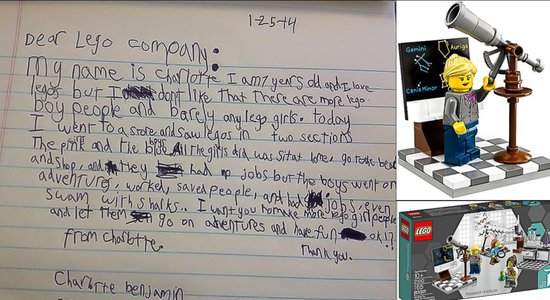 1-25-14
Dear Lego company:
My name is charlotte I am 7 years old and I love
legos but I dont like that there are more lego
boy people and barely any lego girls. today
I went to a store and saw legos in two sections
The pink and the boys blue. All the girls did was sit at home, go to the beach
and shop, and they had no jobs but the boys went on
adventures, worked, saved people, and had jobs, even
swam with sharks. I want you to make more lego girl people
and let them go on adventures and have fun ok!?!
Thank you.
from charlotte.
Charlotte benjamin
Gemini
Auriga
Canis Minor
LEGO
Research Institute